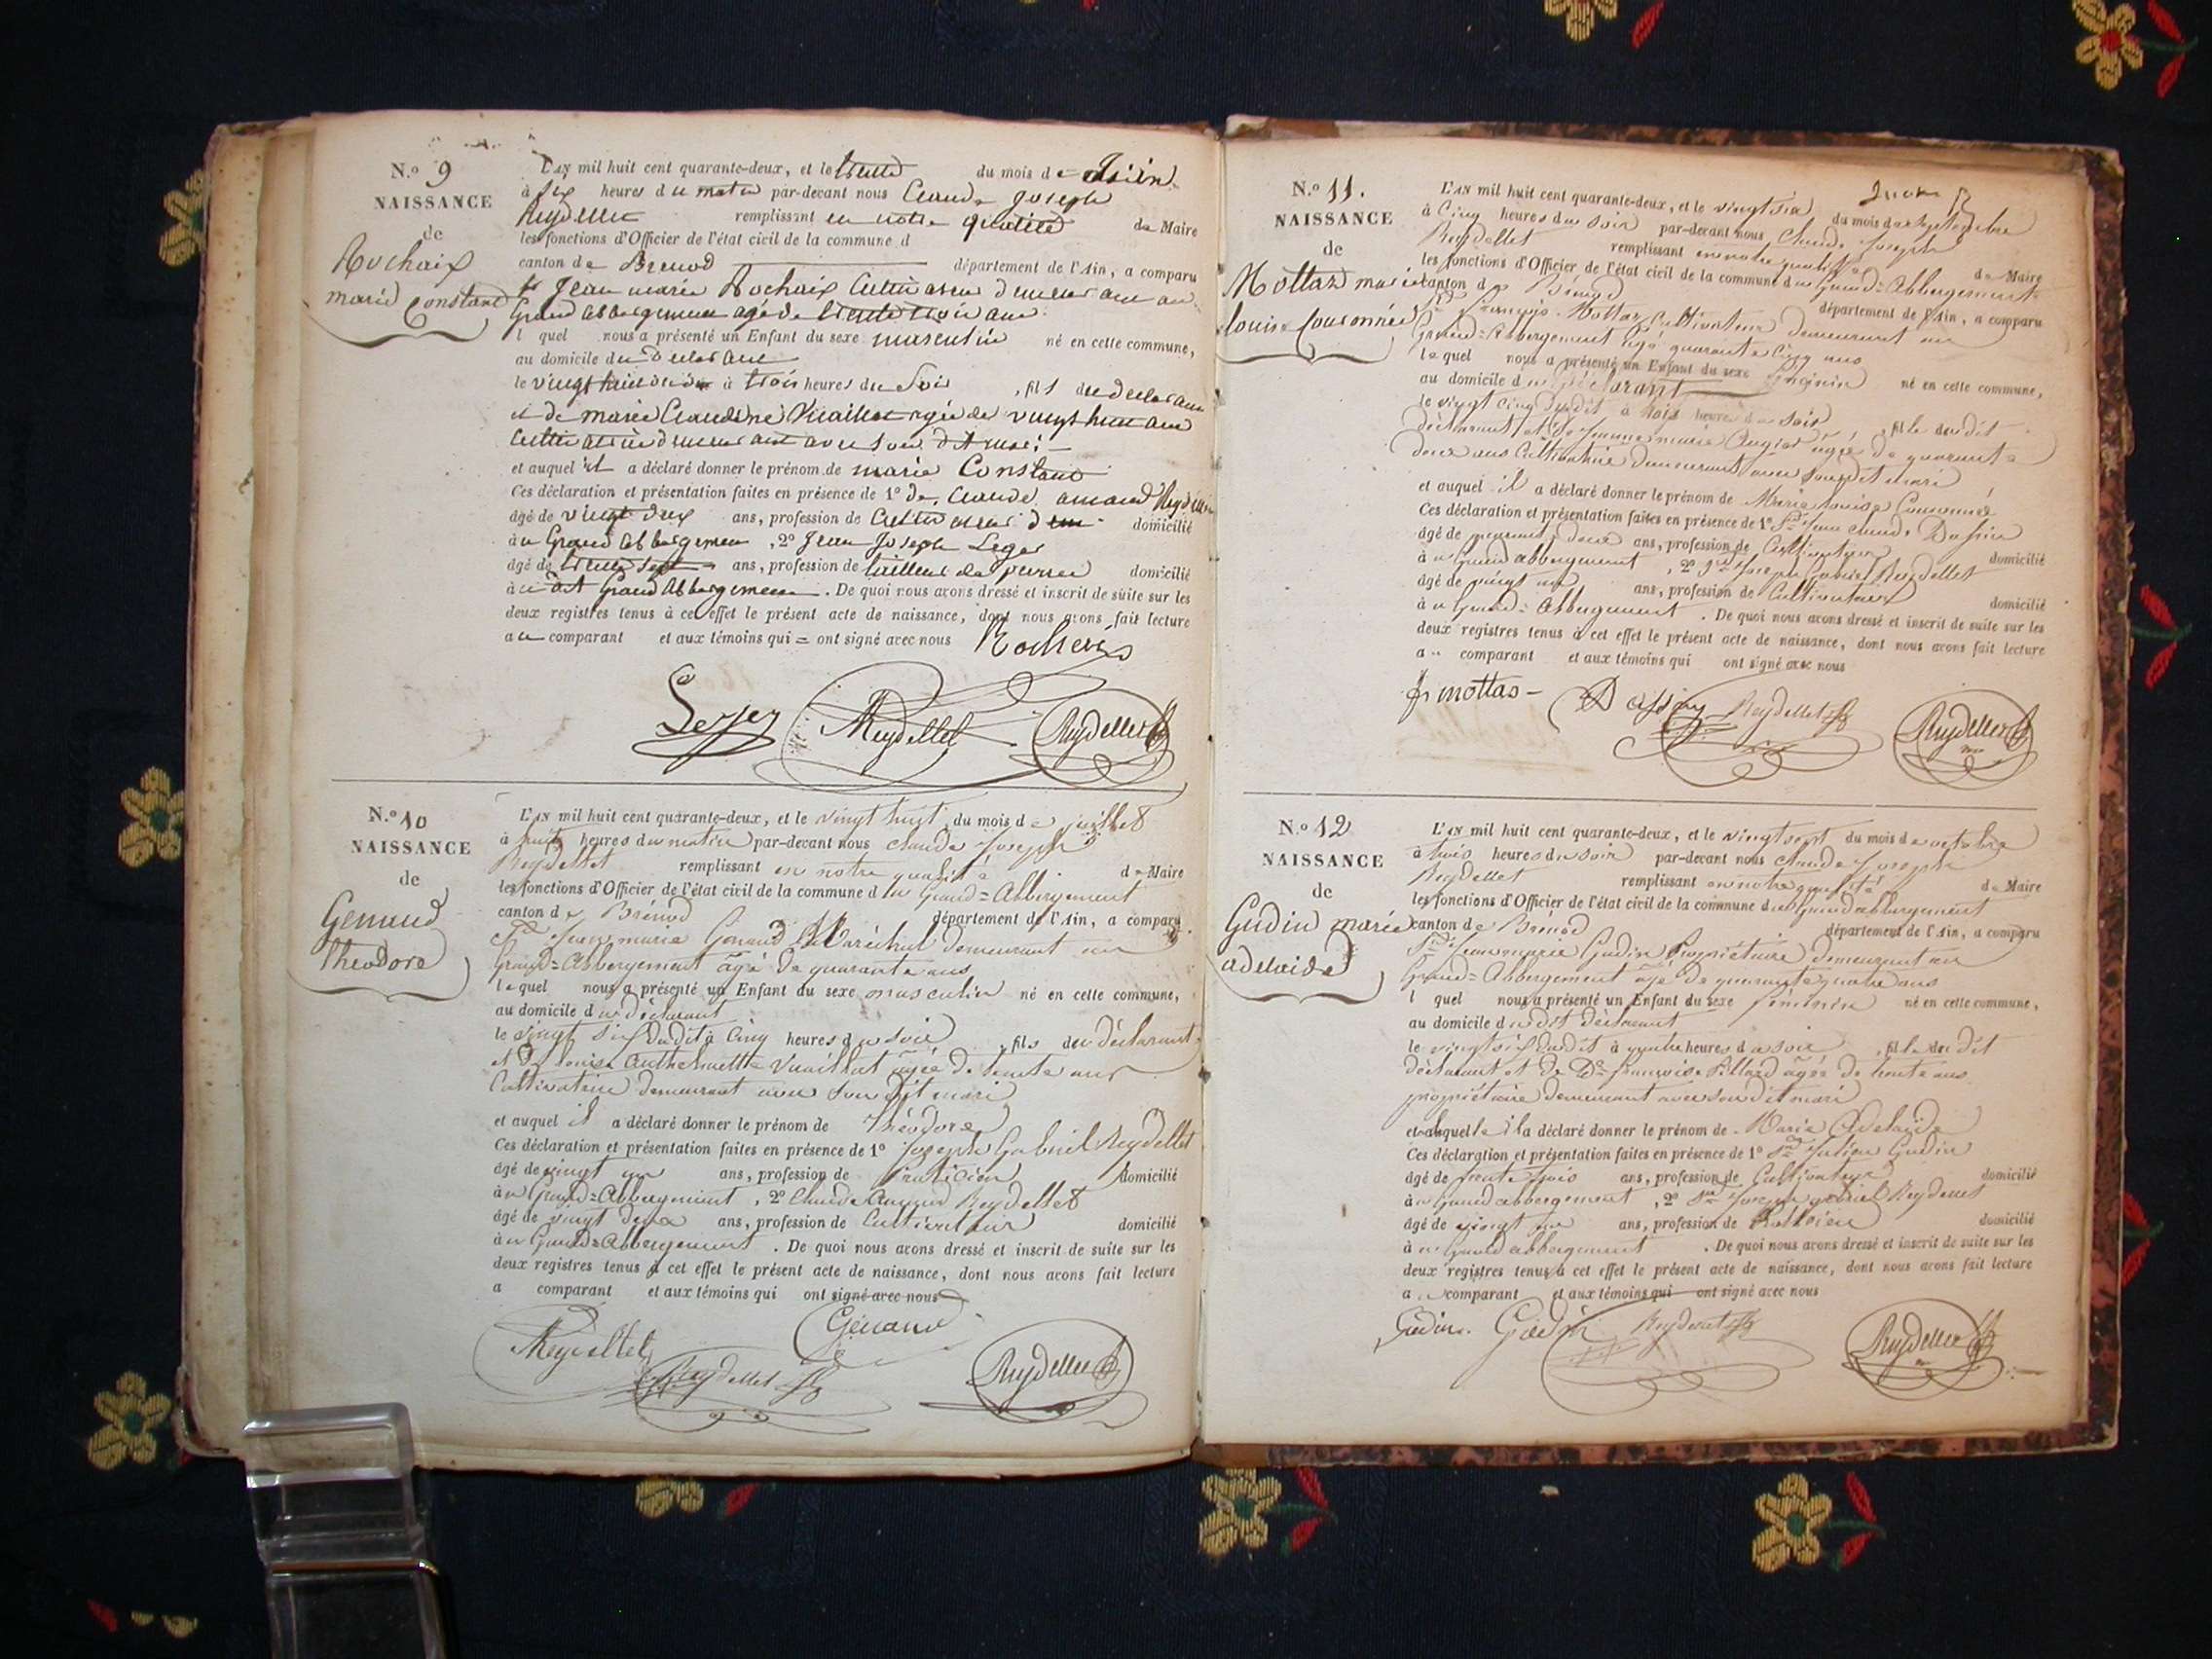 N.º 9
NAISSANCE
de
Rochaix
marié Constand
L'AN mil huit cent quarante-deux, et le trente du mois de Juin
à six heures du matin par-devant nous Claude Joseph
Reydellet remplissant en notre qualité de Maire
les fonctions d'Officier de l'état civil de la commune d
canton de Brenod département de l'Ain, a comparu
Sr Jean marie Rochaix Cultivateur demeurant au
Grand abbergement agé de trente trois ans
l quel nous a présenté un Enfant du sexe masculin né en cette commune,
au domicile du declarant
le vingt huit à trois heures du Soir, fils du declarant
et de marie Claudine Vuaillat agée de vingt huit ans
cultivatrice demeurant avec son dit mari
et auquel il a déclaré donner le prénom de marie Constand
Ces déclaration et présentation faites en présence de 1º de Claude amand Reydellet
âgé de vingt deux ans, profession de Cultivateur domicilié
au Grand abbergement, 2º Jean Joseph Leger
âgé de trente sept ans, profession de tailleur de pierres domicilié
au dt Grand Abbergement. De quoi nous avons dressé et inscrit de suite sur les
deux registres tenus à cet effet le présent acte de naissance, dont nous avons fait lecture
au comparant et aux témoins qui = ont signé avec nous Rochaix
Leger Reydellet Reydellet
N.º 10
NAISSANCE
de
Genand
théodore
L'AN mil huit cent quarante-deux, et le vingt huit du mois de juillet
à huit heures du matin par-devant nous claude Joseph
Reydellet remplissant en notre qualité de Maire
les fonctions d'Officier de l'état civil de la commune du Grand=Abbergement
canton de Brénod département de l'Ain, a comparu
Sr Jean marie Genand Maréchal demeurant au
Grand=Abbergement âgé de quarante ans
lequel nous a présenté un Enfant du sexe masculin né en cette commune,
au domicile du déclarant
le vingt six dudit à cinq heures du soir, fils du déclarant
et de louise Anthelmette Vuaillat agée de trente ans
Cultivatrice demeurant avec son dit mari
et auquel il a déclaré donner le prénom de Théodore
Ces déclaration et présentation faites en présence de 1º Joseph Gabriel Reydellet
âgé de vingt un ans, profession de Praticien domicilié
au Grand=Abbergement, 2º Claude Amand Reydellet
âgé de vingt deux ans, profession de Cultivateur domicilié
au Grand=Abbergement. De quoi nous avons dressé et inscrit de suite sur les
deux registres tenus à cet effet le présent acte de naissance, dont nous avons fait lecture
a comparant et aux témoins qui ont signé avec nous
Reydellet Reydellet Génand Reydellet
N.º 11.
NAISSANCE
de
Mottaz marie
louise Couronnée
L'AN mil huit cent quarante-deux, et le vingt six du mois de Septembre
à Cinq heures du soir par-devant nous Claude Joseph
Reydellet remplissant en notre qualité de Maire
les fonctions d'Officier de l'état civil de la commune du Grand=Abbergement
canton de Brénod département de l'Ain, a comparu
Sr François Mottaz Cultivateur demeurant au
Grand=Abbergement âgé quarante Cinq ans
lequel nous a présenté un Enfant du sexe féminin né en cette commune,
au domicile du déclarant
le vingt Cinq dudit à trois heures du soir, fille du dit
déclarant et de Jeanne marie âgée de quarante
deux ans Cultivatrice demeurant avec son dit mari
et auquel il a déclaré donner le prénom de Marie Louise Couronnée
Ces déclaration et présentation faites en présence de 1º Sr Jean claude
âgé de deux ans, profession de Cultivateur domicilié
au Grand abbergement, 2º Sr Joseph Gabriel Reydellet
âgé de vingt un ans, profession de Cultivateur domicilié
au Grand=Abbergement. De quoi nous avons dressé et inscrit de suite sur les
deux registres tenus à cet effet le présent acte de naissance, dont nous avons fait lecture
au comparant et aux témoins qui ont signé avec nous
fr mottas Reydellet Reydellet
N.º 12
NAISSANCE
de
Gudin marie
adelaide
L'AN mil huit cent quarante-deux, et le vingt sept du mois de octobre
à trois heures du soir par-devant nous claude Joseph
Reydellet remplissant en notre qualité de Maire
les fonctions d'Officier de l'état civil de la commune du Grand abbergement
canton de Brénod département de l'Ain, a comparu
Sr Jean marie Gudin Propriétaire demeurant au
Grand=Abbergement âgé de quarante quatre ans
l quel nous a présenté un Enfant du sexe féminin né en cette commune,
au domicile dudit déclarant
le vingt six dudit à quatre heures du soir, fille du dit
déclarant et de De françoise âgée de trente ans
propriétaire demeurant avec son dit mari
et à laquelle il a déclaré donner le prénom de Marie Adelaide
Ces déclaration et présentation faites en présence de 1º Sr Julien Gudin
âgé de trente trois ans, profession de Cultivateur domicilié
au Grand abbergement, 2º Sr Joseph gabriel Reydellet
âgé de vingt un ans, profession de Praticien domicilié
au Grand abbergement. De quoi nous avons dressé et inscrit de suite sur les
deux registres tenus à cet effet le présent acte de naissance, dont nous avons fait lecture
au comparant et aux témoins qui ont signé avec nous
Gudin. Gudin Reydellet Reydellet